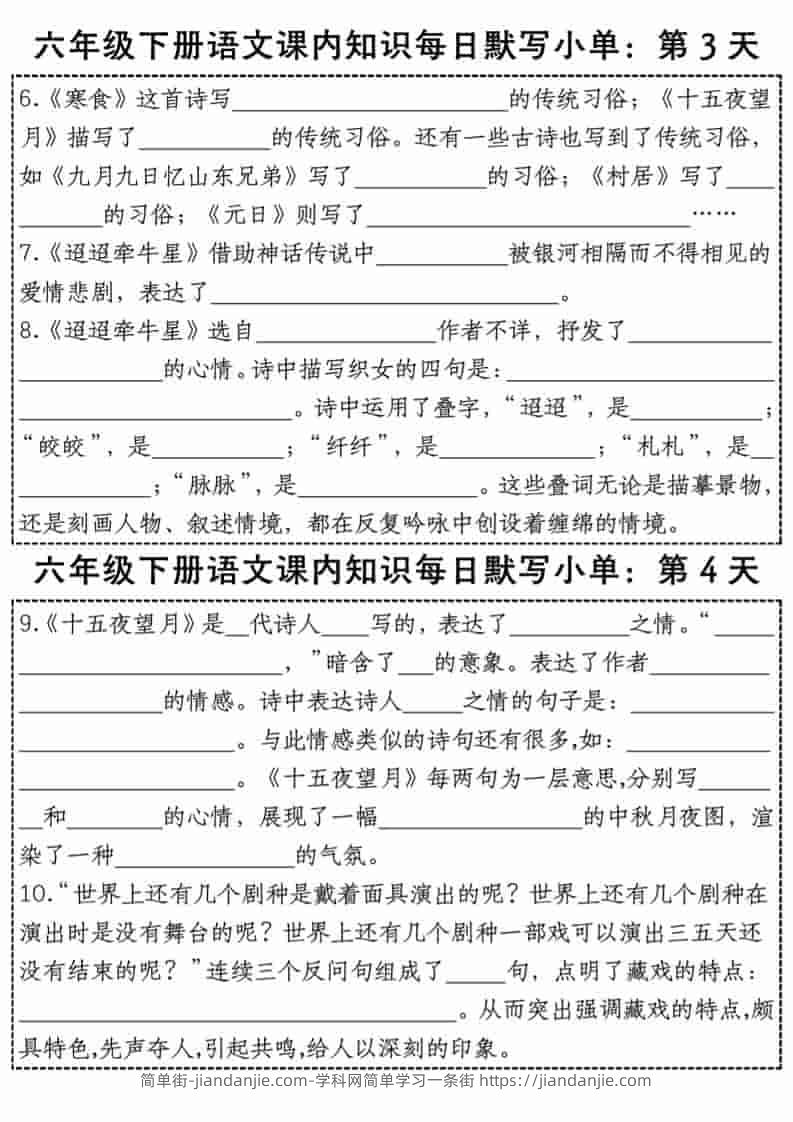 六年级下册语文课内知识每日默写小单：第 3 天
6.《寒食》这首诗写_______________________的传统习俗；《十五夜望
月》描写了___________的传统习俗。还有一些古诗也写到了传统习俗，
如《九月九日忆山东兄弟》写了___________的习俗；《村居》写了____
_______的习俗；《元日》则写了___________________________……
7.《迢迢牵牛星》借助神话传说中___________被银河相隔而不得相见的
爱情悲剧，表达了_____________________________。
8.《迢迢牵牛星》选自_______________作者不详，抒发了____________
____________的心情。诗中描写织女的四句是：______________________
_______________________。诗中运用了叠字，“迢迢”，是___________；
“皎皎”，是___________；“纤纤”，是_____________；“札札”，是__
___________；“脉脉”，是_______________。这些叠词无论是描摹景物，
还是刻画人物、叙述情境，都在反复吟咏中创设着缠绵的情境。
六年级下册语文课内知识每日默写小单：第 4 天
9.《十五夜望月》是__代诗人____写的，表达了__________之情。“_____
______________________，”暗含了___的意象。表达了作者__________
____________的情感。诗中表达诗人_____之情的句子是：____________
__________________。与此情感类似的诗句还有很多,如：____________
__________________。《十五夜望月》每两句为一层意思,分别写______
__和________的心情，展现了一幅_________________的中秋月夜图，渲
染了一种_______________的气氛。
10.“世界上还有几个剧种是戴着面具演出的呢？世界上还有几个剧种在
演出时是没有舞台的呢？世界上还有几个剧种一部戏可以演出三五天还
没有结束的呢？”连续三个反问句组成了_____句，点明了藏戏的特点：
____________________________________。从而突出强调藏戏的特点,颇
具特色,先声夺人,引起共鸣,给人以深刻的印象。
简单街-jiandanjie.com-学科网简单学习一条街 https://jiandanjie.com